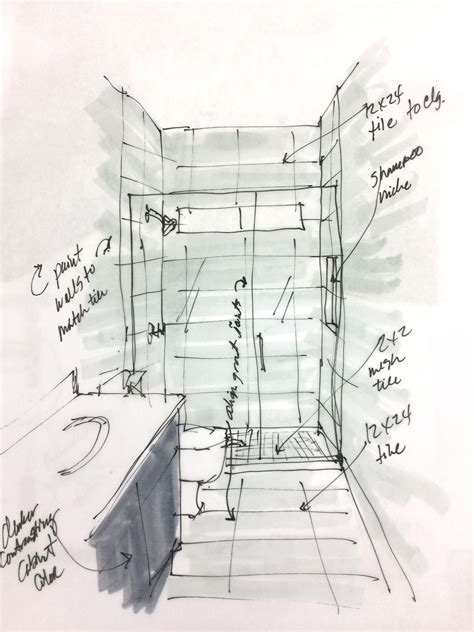 12x24
tile to clg.
shampoo
niche
paint
walls to
match tile
align grout joints
2x2
mesh
tile
12x24
tile
Darker
Contrasting
Cabinet
Color